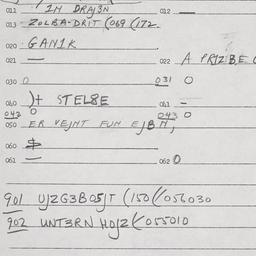 011 IM DRAJ3N 012 —
013 ZOLBA-DRIT (069 (172
020 GANIK
021 — 022 A PRIZ B.E
030 0 031 0
040 )+ STEL8E 041 –
042 0 043 0
050 ER VEJNT FUM EJBM,
060 $
061 — 062 0
901 UJZG3B05JT (150((056030
902 UNT3RN HOJZ((055010